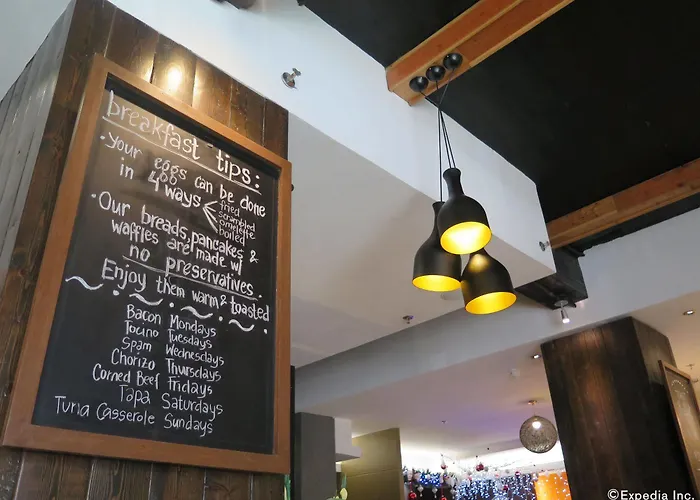 breakfast tips:
• Your eggs can be done
in 4 ways
fried
scrambled
omelette
boiled
• Our breads, pancakes &
waffles are made w/
no preservatives.
Enjoy them warm & toasted
Bacon Mondays
Tocino Tuesdays
Spam Wednesdays
Chorizo Thursdays
Corned Beef Fridays
Tapa Saturdays
Tuna Casserole Sundays
©Expedia Inc.